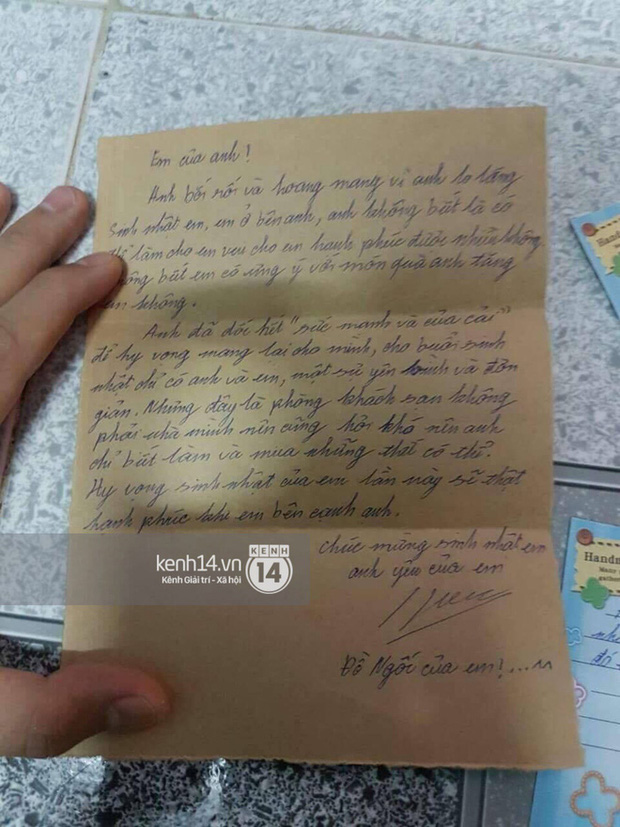 Em của anh!
Anh bối rối và hoang mang vì anh lo lắng
sinh nhật em, em ở bên anh, anh không biết là có
thể làm cho em vui cho em hạnh phúc được nhiều không
không biết em có ưng ý với món quà anh tặng
em không.
Anh đã dốc hết "sức mạnh và của cải"
để hy vọng mang lại cho mình, cho buổi sinh
nhật chỉ có anh và em, một sự yên bình và đơn
giản. Nhưng đây là phòng khách sạn không
phải nhà mình nên cũng hơi khó nên anh
chỉ biết làm và mua những thứ có thể.
Hy vọng sinh nhật của em lần này sẽ thật
hạnh phúc khi em bên cạnh anh.
chúc mừng sinh nhật em
anh yêu của em
Đồ Ngốc của em!...
kenh14.vn
Kênh Giải trí - Xã hội
KENH
14
Hands
Hands
Many
gather